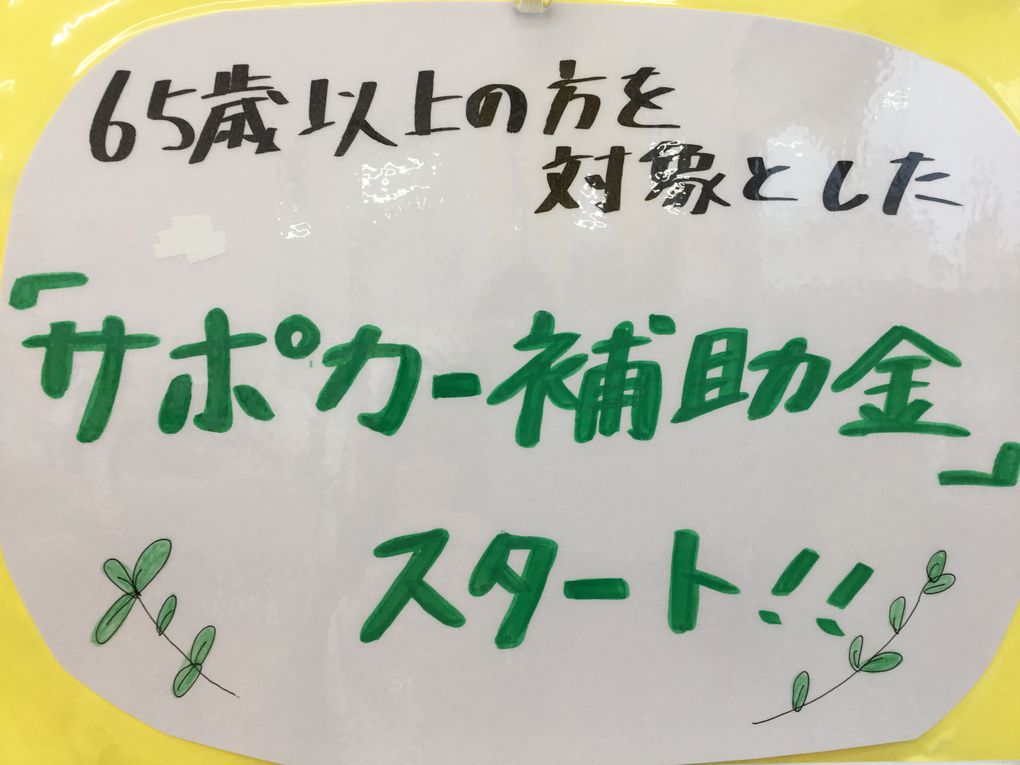 65歳以上の方を
対象とした
「サポカー補助金」
スタート!!